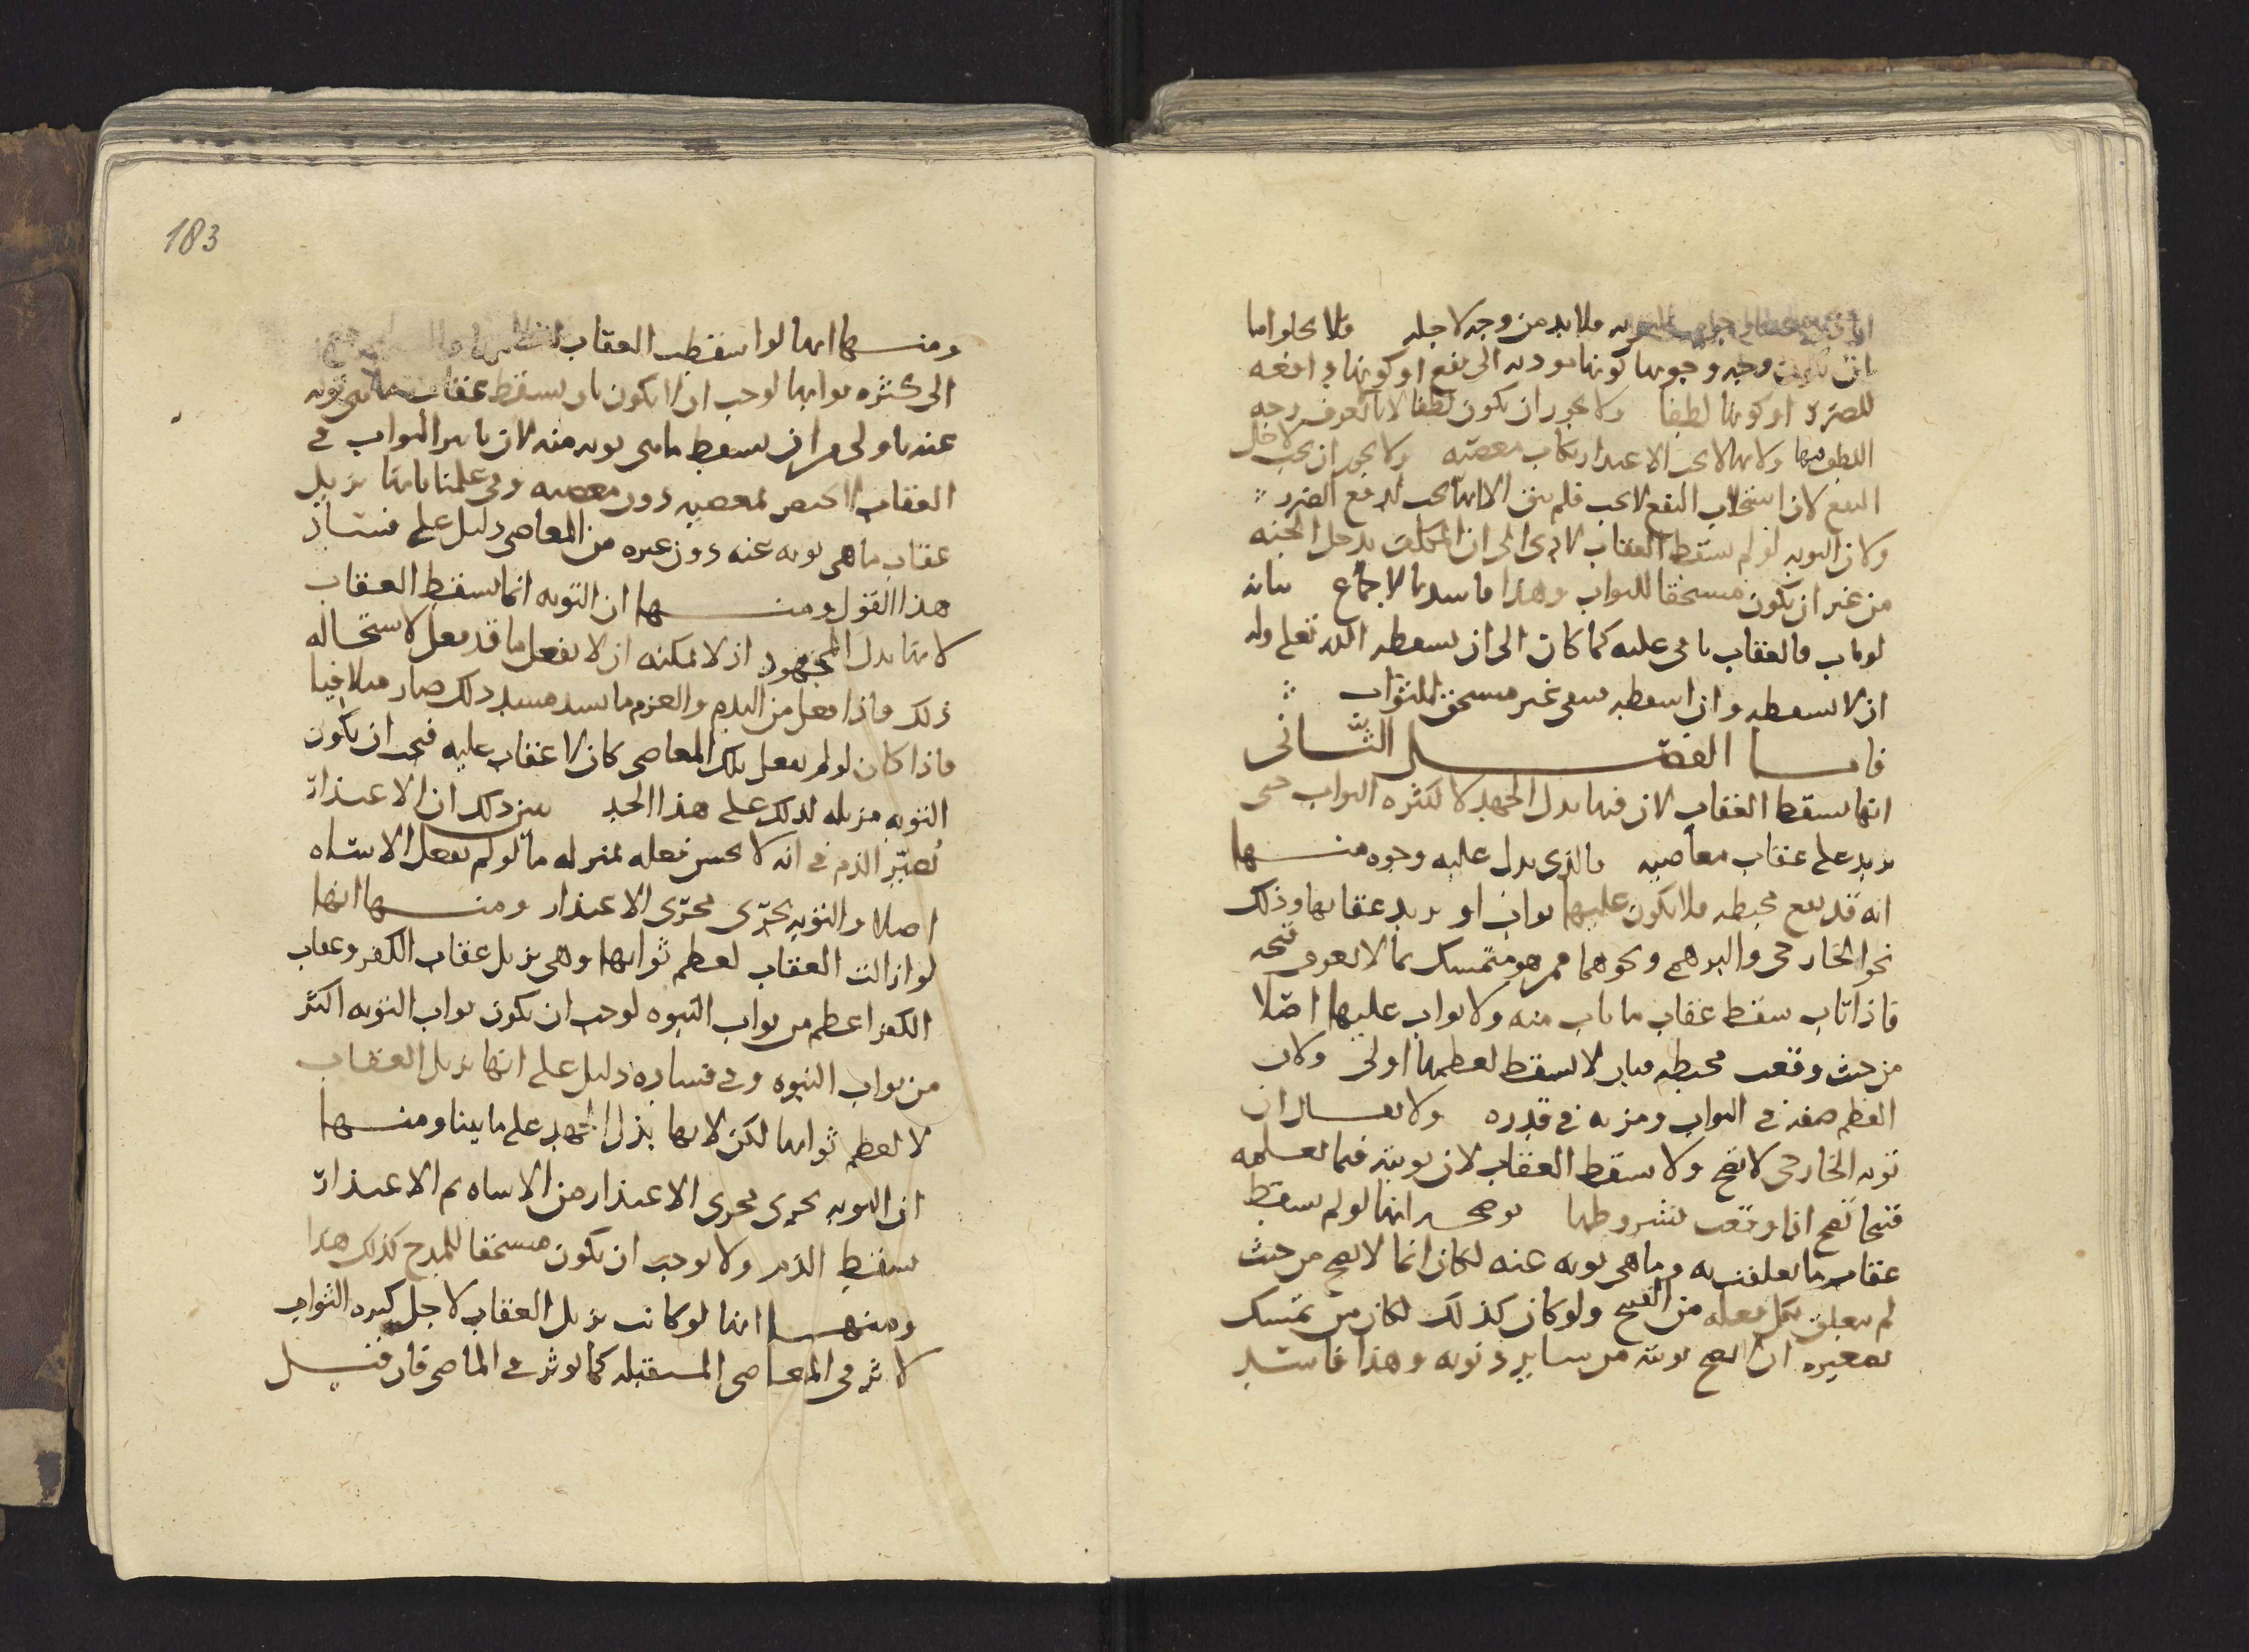 فلا بد من وجه لاجله فلا يخلو اما
ان يكون وجه وجوبها كونها موديه الى نفع او كونها دافعه
للضرر او كونها لطفا ولا يجوز ان يكون لطفا لانا لا نعرف وجه
اللطف فيها ولانها لا تجب الا عند ارتكاب معصيه ولا يجوز ان تجب لاجل
النفع لان استجلاب النفع لا يجب فلم يبق الا انها تجب لدفع الضرر
ولان التوبه لو لم تسقط العقاب لادى الى ان المكلف يدخل الجنه
من غير ان يكون مستحقا للثواب وهذا فاسد بالاجماع بيانه
لو تاب فالعقاب باقى عليه كما كان الى ان يسقطه الله تعلى وله
ان لا يسقطه وان اسقطه بقى غير مستحق للثواب
فاما الفصل الثانى
انها تسقط العقاب لان فيها بذل الجهد لا لكثره الثواب حتى
يزيد على عقاب معاصيه فالذى يدل عليه وجوه منها
انه قد تقع محبطه فلا يكون عليها ثواب او يزيد عقابها وذلك
نحو الخارجى والبرهمى ونحوهما ممن هو متمسك بما لا يعرف قبحه
فاذا تاب سقط عقاب ما تاب منه ولا ثواب عليها اصلا
من حيث وقعت محبطه فبان لا تسقط لعظمها اولى ولان
العظم صفه فى الثواب ومزيه فى قدره ولا يقال ان
توبه الخارجى لا تصح ولا تسقط العقاب لان توبته فيما تعلمه
قبحا تصح اذا وقعت بشروطها يوضحه انها لو لم تسقط
عقاب ما تعلقت به وما هى توبه عنه لكان انما لا تصح من حيث
لم تتعلق بكل فعله من القبح ولو كان كذلك لكان من تمسك
بصغيره ان لا تصح توبته من ساير ذنوبه وهذا فاسد
183
ومنها انها لو اسقطت العقاب
الى كثره ثوابها لوجب ان لا يكون بان يسقط عقاب ما هى توبه
عنه باولى من ان يسقط ما هى توبه منه لان تاثير الثواب فى
العقاب لا يختص بمعصيه دون معصيه وفى علمنا بانها تزيل
عقاب ما هى توبه عنه دون غيره من المعاصى دليل على فساد
هذا القول ومنها ان التوبه انما تسقط العقاب
لانها بذل المجهود اذ لا يمكنه ان لا يفعل ما قد فعل لاستحاله
ذلك فاذا فعل من الندم والعزم ما يسد مسد ذلك صار متلافيا
فاذا كان لو لم يفعل تلك المعاصى كان لا عقاب عليه فيجب ان يكون
التوبه مزيله لذلك على هذا الحد يبين ذلك ان الاعتذار
يصير الذم فى انه لا يحسن فعله بمنزله ما لو لم يفعل الاساه
اصلا والتوبه تجرى مجرى الاعتذار ومنها انها
لو ازالت العقاب لعظم ثوابها وهى تزيل عقاب الكفر وعقاب
الكفر اعظم من ثواب النبوه لوجب ان يكون ثواب التوبه اكثر
من ثواب النبوه وفى فساده دليل على انها تزيل العقاب
لا لعظم ثوابها لكن لانها بذل الجهد على ما بينا ومنها
ان التوبه تجرى مجرى الاعتذار من الاساه ثم الاعتذار
يسقط الذم ولا يوجب ان يكون مستحقا للمدح كذلك هذا
ومنها انها لو كانت تزيل العقاب لاجل كثره الثواب
لاثر فى المعاصى المستقبله كما يوثر فى الماضى فان قيل